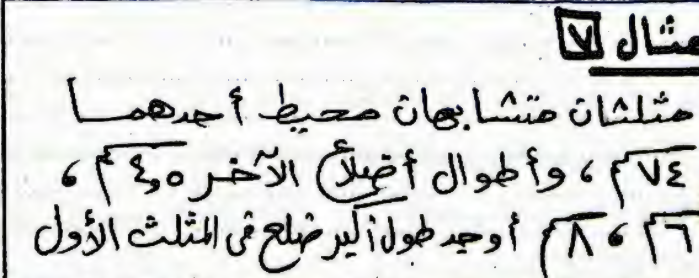 مثال ٧
مثلثان متشابهان محيط أحدهما
٧٤ سم ، وأطوال أضلاع الآخر ٤,٥ سم ،
٦ سم ، ٨ سم أوجد طول أكبر ضلع فى المثلث الأول